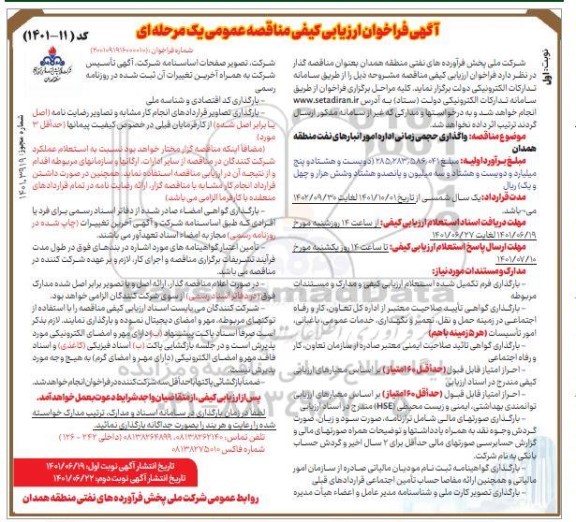 آگهی فراخوان ارزیابی کیفی مناقصه عمومی یک مرحله ای
کد (۱۱-۱۴۰۱)
نوبت: اول
شماره مجوز: ۱۴۰۱.۳۹۱۹
شرکت ملی پخش فرآورده های نفتی منطقه همدان بعنوان مناقصه گذار
در نظر دارد فراخوان ارزیابی کیفی مناقصه مشروحه ذیل را از طریق سامانه
تدارکات الکترونیکی دولت برگزار نماید. کلیه مراحل برگزاری فراخوان از طریق
سامانه تدارکات الکترونیکی دولت (ستاد) به آدرس www.setadiran.ir
انجام خواهد شد و به درخواستها و مدارکی که غیر از سامانه مذکور ارسال
گردند ترتیب اثر داده نخواهد شد.
موضوع مناقصه: واگذاری حجمی زمانی اداره امور انبارهای نفت منطقه
همدان
مبلغ برآورد اولیه: مبلغ ۲۸۵,۲۸۳,۵۸۶,۰۴۱ (دویست و هشتاد و پنج
میلیارد و دویست و هشتاد و سه میلیون و پانصد و هشتاد و شش هزار و چهل
و یک) ریال
مدت قرارداد: یک سال شمسی از تاریخ ۱۴۰۱/۱۰/۰۱ لغایت ۱۴۰۲/۰۹/۳۰
می باشد.
مهلت دریافت اسناد استعلام ارزیابی کیفی: از ساعت ۱۴ روز شنبه مورخ
۱۴۰۱/۰۶/۱۹ لغایت ۱۴۰۱/۰۶/۲۷
مهلت ارسال پاسخ استعلام ارزیابی کیفی: تا ساعت ۱۴ روز یکشنبه مورخ
۱۴۰۱/۰۷/۱۰
مدارک و مستندات مورد نیاز:
- بارگذاری فرم تکمیل شده استعلام ارزیابی کیفی و مدارک و مستندات
مربوطه
- بارگذاری گواهی تایید صلاحیت معتبر از اداره کل تعاون، کار و رفاه
اجتماعی در زمینه حمل و نقل، تعمیر و نگهداری، خدمات عمومی، باغبانی،
امور تأسیسات (هر ۵ زمینه باهم)
- بارگذاری گواهی تائید صلاحیت ایمنی معتبر صادره از سازمان تعاون، کار
و رفاه اجتماعی
- احراز امتیاز قابل قبول (حداقل ۶۰ امتیاز) بر اساس معیارهای ارزیابی
کیفی مندرج در اسناد ارزیابی
- احراز امتیاز قابل قبول (حداقل ۶۰ امتیاز) بر اساس معیارهای ارزیابی
توانمندی بهداشتی، ایمنی و زیست محیطی (HSE) مندرج در اسناد ارزیابی
- بارگذاری صورتهای مالی شامل ترازنامه، صورت سود و زیان، صورت
گردش وجوه نقد به همراه یادداشتها و توضیحات همراه صورتهای مالی و
گزارش حسابرسی صورتهای مالی حداقل برای ۲ سال اخیر و گردش حساب
بانکی به نام شرکت.
- بارگذاری گواهینامه ثبت نام مودیان مالیاتی صادره از سازمان امور
مالیاتی و همچنین ارائه مفاصا حساب تأمین اجتماعی قراردادهای قبلی
- بارگذاری تصویر کارت ملی و شناسنامه مدیر عامل و اعضاء هیأت مدیره
شرکت، تصویر صفحات اساسنامه شرکت، آگهی تأسیس
شرکت به همراه آخرین تغییرات آن ثبت شده در روزنامه
رسمی
- بارگذاری کد اقتصادی و شناسه ملی
- بارگذاری تصاویر قراردادهای انجام کار مشابه و تصاویر رضایت نامه (اصل
یا برابر اصل شده) از کارفرمایان قبلی در خصوص کیفیت پیمانها (حداقل ۳
مورد)
(مضافا اینکه مناقصه گزار مختار خواهد بود نسبت به استعلام عملکرد
شرکت کنندگان در مناقصه از سایر ادارات، ارگانها و سازمانهای مربوطه اقدام
و از نتیجه آن در ارزیابی مناقصه استفاده نماید. همچنین در صورت داشتن
قرارداد انجام کار مشابه با مناقصه گزار، ارائه رضایت نامه در تمام قراردادهای
منعقده با کارفرما الزامی می باشد)
- بارگذاری گواهی امضاء صادر شده از دفاتر اسناد رسمی برای فرد یا
افرادی که طبق اساسنامه شرکت و آگهی آخرین تغییرات (چاپ شده در
روزنامه رسمی) مجاز به امضاء اسناد تعهدآور می باشند.
- تأمین اعتبار گواهینامه های مورد اشاره در بندهای فوق در طول مدت
فرآیند تشریفات برگزاری مناقصه و اجرای کار، لازم و بر عهده شرکت کننده در
مناقصه می باشد.
- در صورت اعلام مناقصه گذار، ارائه اصل و یا تصویر برابر اصل شده مدارک
فوق (در دفاتر اسناد رسمی) از سوی شرکت کنندگان الزامی خواهد بود.
- شرکت کنندگان می بایست اسناد ارزیابی کیفی مناقصه را با استفاده از
توکنهای مربوطه، مهر و امضای دیجیتال نموده و بارگذاری نمایند. لازم بذکر
است صرفا اسناد پاکت پیشنهاد (ب) دارای مهر و امضای الکترونیکی مورد
پذیرش است و در جلسه بازگشایی پاکت (ب) اسناد فیزیکی (کاغذی) و اسناد
فاقد مهر و امضای الکترونیکی (دارای مهر و امضای گرم) به هیچ وجه مورد
پذیرش نیست.
- ضمنا بازگشائی پاکتها با حداقل سه شرکت کننده در فراخوان انجام خواهد شد.
پس از ارزیابی کیفی، از متقاضیان واجد شرایط دعوت بعمل خواهد آمد.
لطفا در زمان بارگذاری در سامانه اسناد و مدارک، ترتیب مدارک خواسته
شده را رعایت و هر بند را بصورت جداگانه بارگذاری نمائید.
تاریخ انتشار آگهی نوبت اول: ۱۴۰۱/۰۶/۱۹
تاریخ انتشار آگهی نوبت دوم: ۱۴۰۱/۰۶/۲۲
روابط عمومی شرکت ملی پخش فرآورده های نفتی منطقه همدان